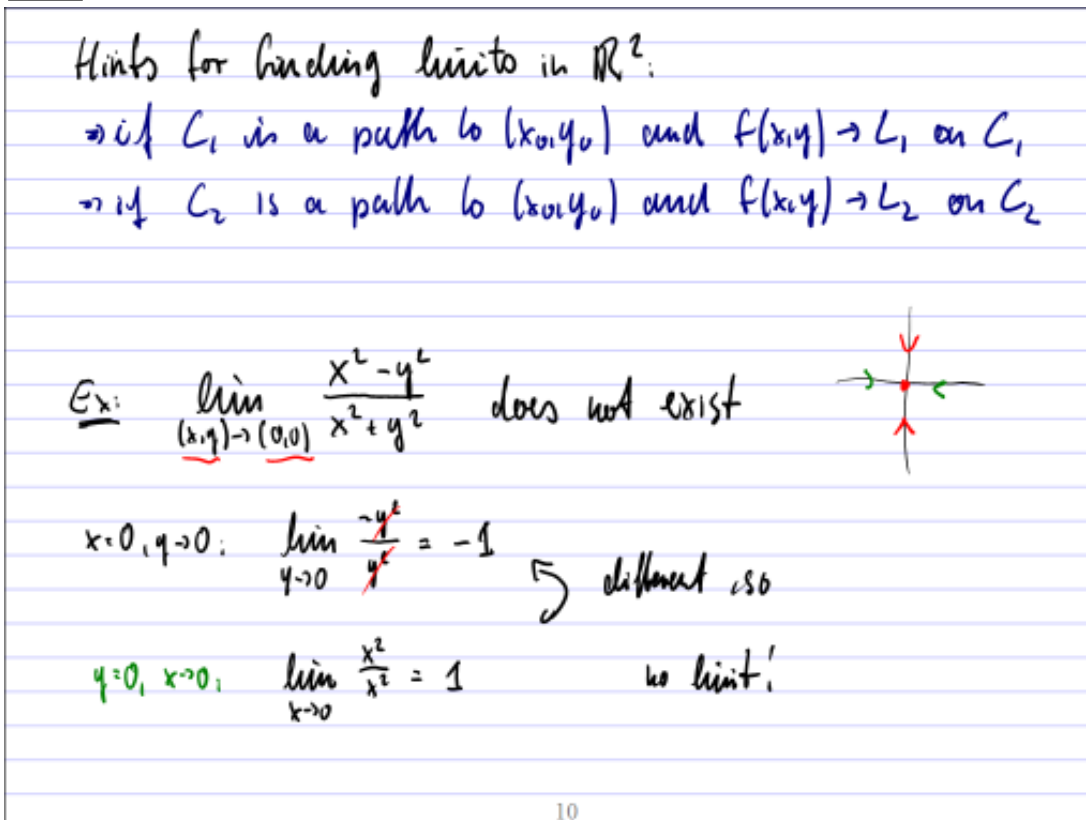 Hints for finding limits in ℝ²:
⇒ if C₁ is a path to (x₀,y₀) and f(x,y) → L₁ on C₁
⇒ if C₂ is a path to (x₀,y₀) and f(x,y) → L₂ on C₂
Ex: lim (x,y)→(0,0) (x² - y²)/(x² + y²) does not exist
x=0, y→0: lim y→0 -y²/y² = -1
different, so
y=0, x→0: lim x→0 x²/x² = 1 no limit!
10